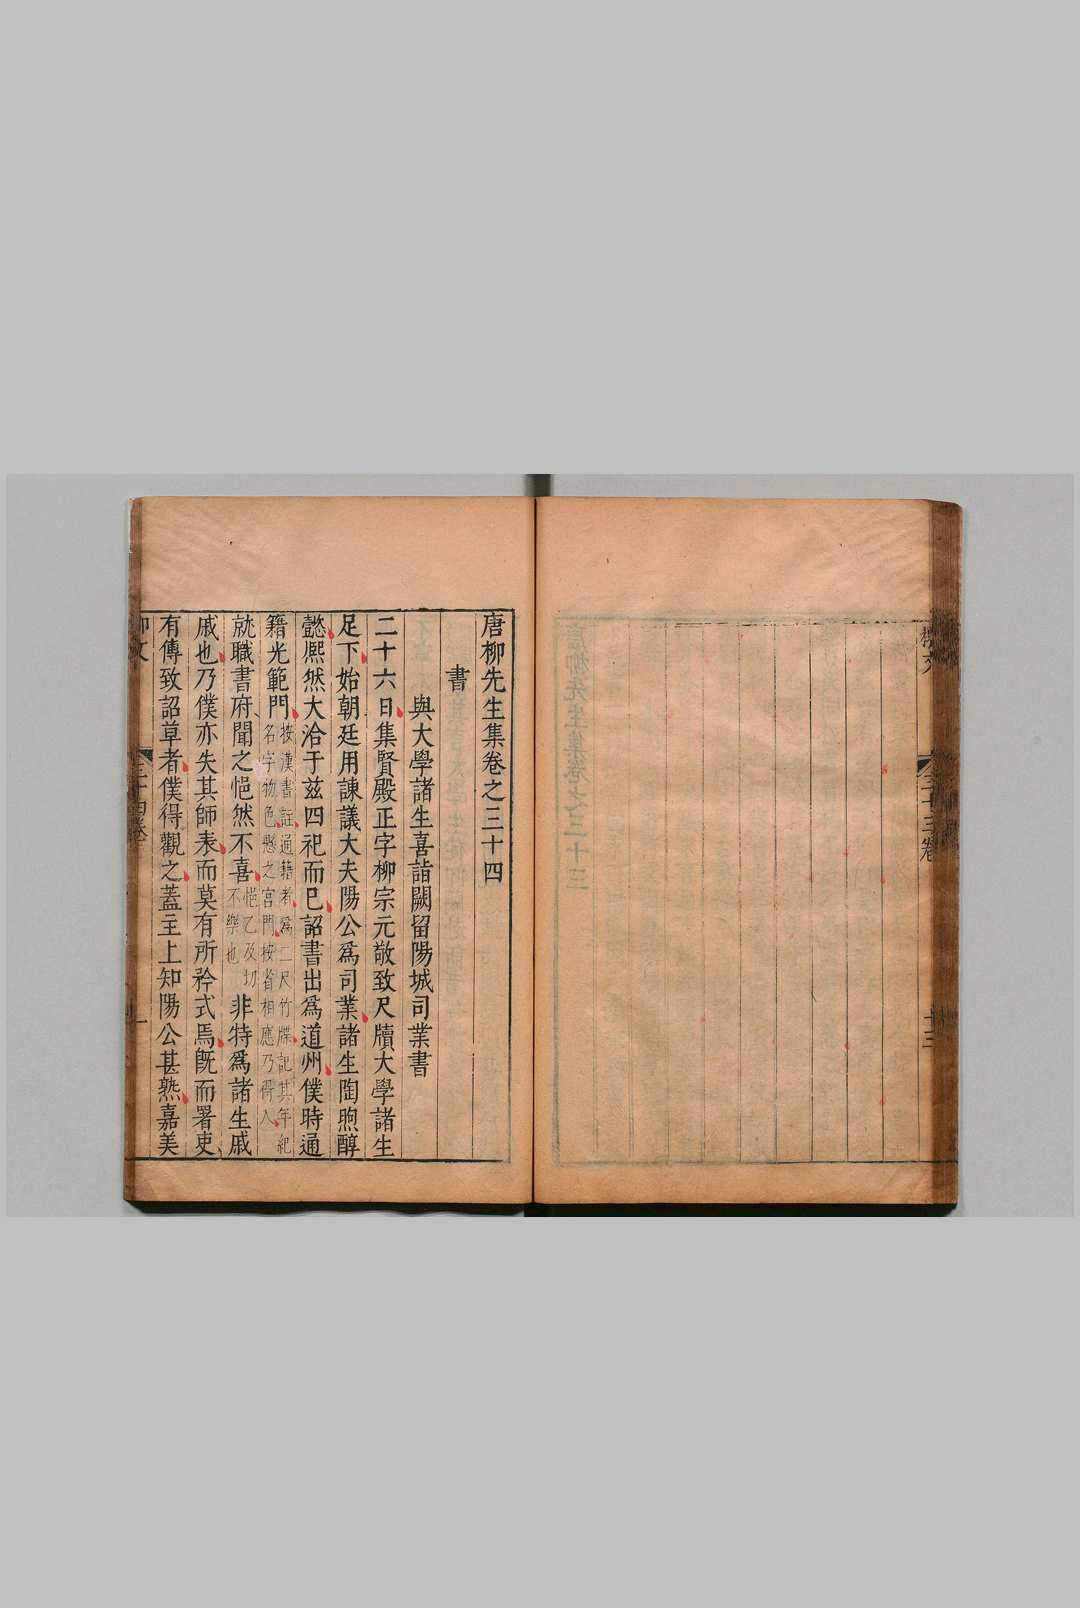 三十三卷
十三
唐柳先生集卷之三十四
書
與大學諸生喜詣闕留陽城司業書
二十六日集賢殿正字柳宗元敬致尺牘大學諸生
足下始朝廷用諫議大夫陽公爲司業諸生陶煦醇
懿熈然大洽于茲四祀而巳詔書出爲道州僕時通
籍光範門
按漢書註通籍者爲二尺竹牒記其年紀
名字物色懸之宮門按省相應乃得入
就職書府聞之悒然不喜
悒乙及切
不樂也
非特爲諸生戚
戚也乃僕亦失其師表而莫有所矜式焉旣而署吏
有傳致詔草者僕得觀之蓋主上知陽公甚熟嘉美
三十四卷
一